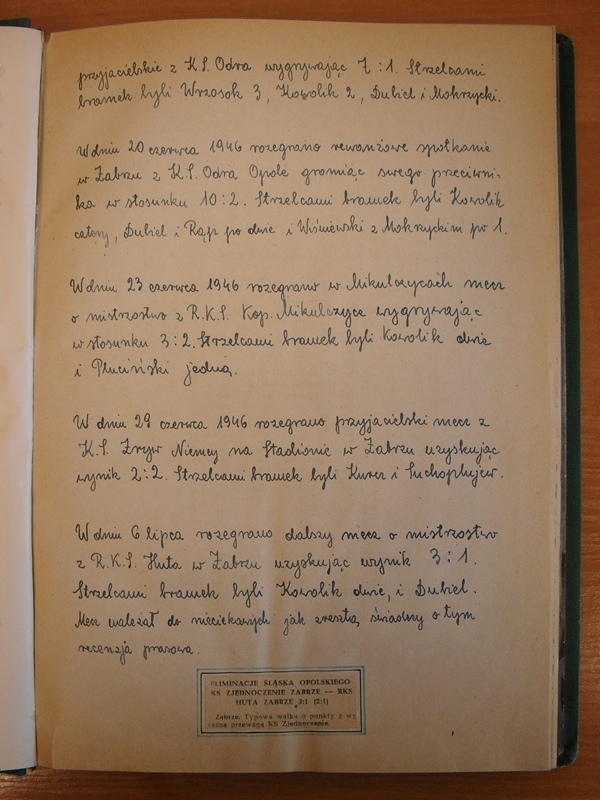 przyjacielskie z K.S. Odra wygrywając 7:1. Strzelcami
bramek byli Wrzosok 3, Kowolik 2, Dubiel i Mokrzycki.
W dniu 20 czerwca 1946 rozegrano rewanżowe spotkanie
w Zabrzu z K.S. Odra Opole gromiąc swego przeciwni-
ka w stosunku 10:2. Strzelcami bramek byli Kowolik
cztery, Dubiel i Rąp po dwie i Wiśniewski z Mokrzyckim po 1.
W dniu 23 czerwca 1946 rozegrano w Mikulczycach mecz
o mistrzostwo z R.K.S. Kop. Mikulczyce wygrywając
w stosunku 3:2. Strzelcami bramek byli Kowolik dwie
i Pluciński jedną.
W dniu 29 czerwca 1946 rozegrano przyjacielski mecz z
K.S. Zryw Niemcy na Stadionie w Zabrzu uzyskując
wynik 2:2. Strzelcami bramek byli Kurcz i
W dniu 6 lipca rozegrano dalszy mecz o mistrzostwo
z R.K.S. Huta w Zabrzu uzyskując wynik 3:1.
Strzelcami bramek byli Kowolik dwie, i Dubiel.
Mecz należał do nieciekawych jak zresztą świadczy o tym
recenzja prasowa.
ELIMINACJE ŚLĄSKA OPOLSKIEGO
KS ZJEDNOCZENIE ZABRZE — RKS
HUTA ZABRZE 3:1 (2:1)
Zabrze. Typowa walka o punkty z wy
raźną przewagą KS Zjednoczenie.